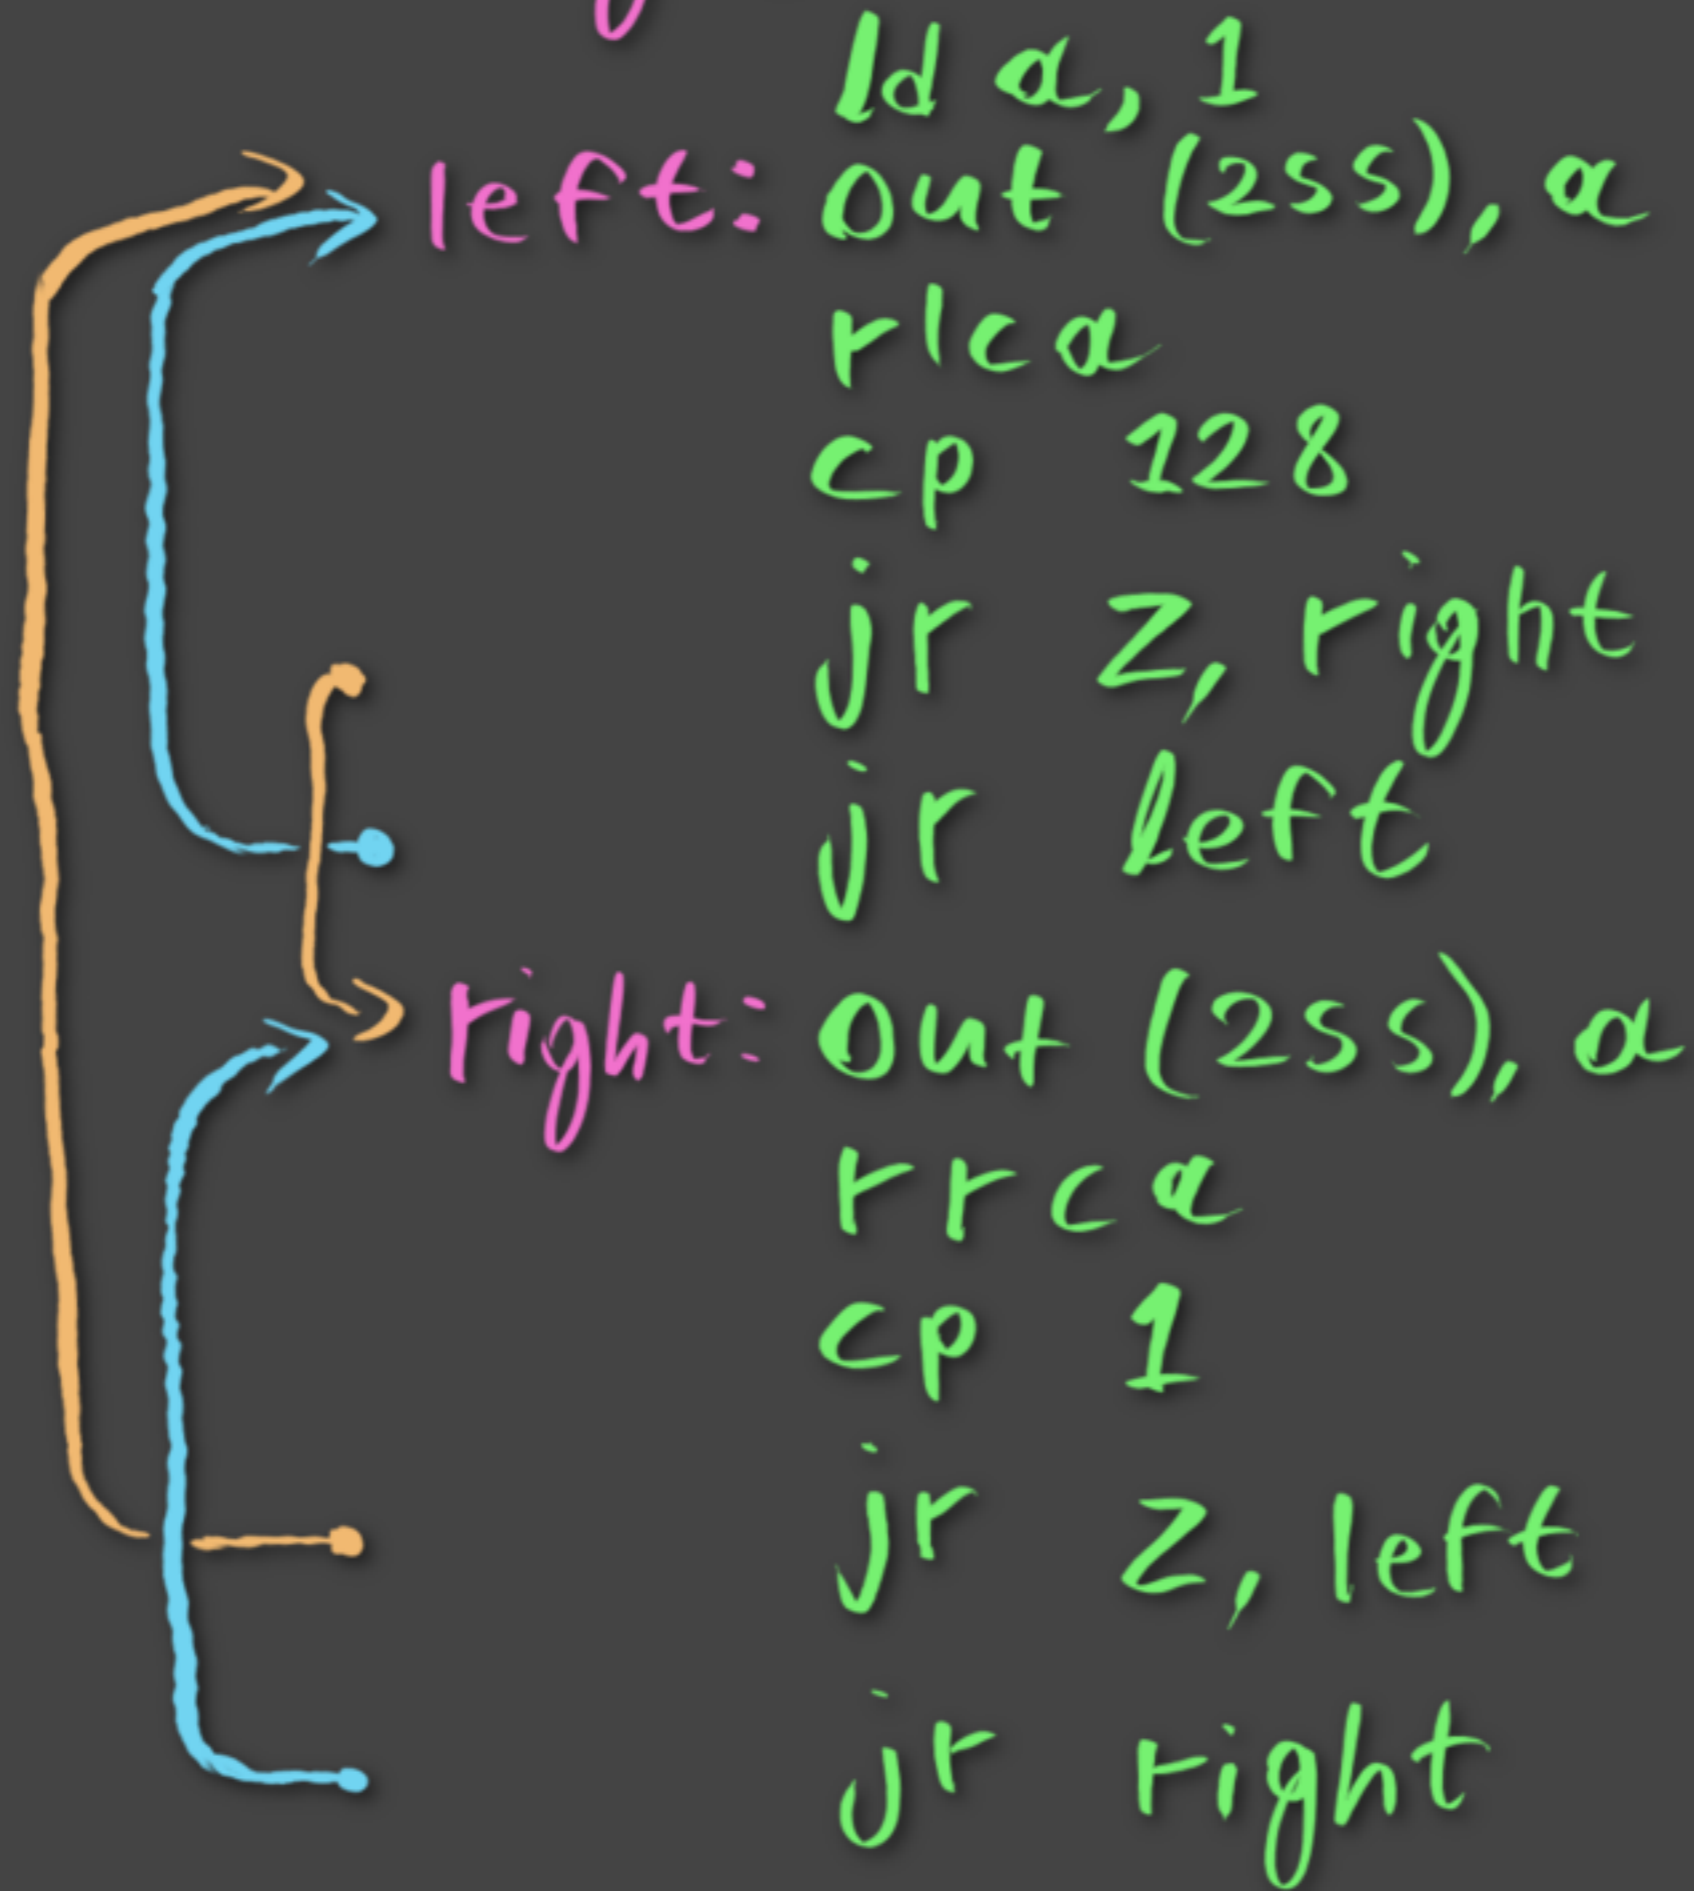 ld a, 1
left: out (255), a
rlca
cp 128
jr z, right
jr left
right: out (255), a
rrca
cp 1
jr z, left
jr right